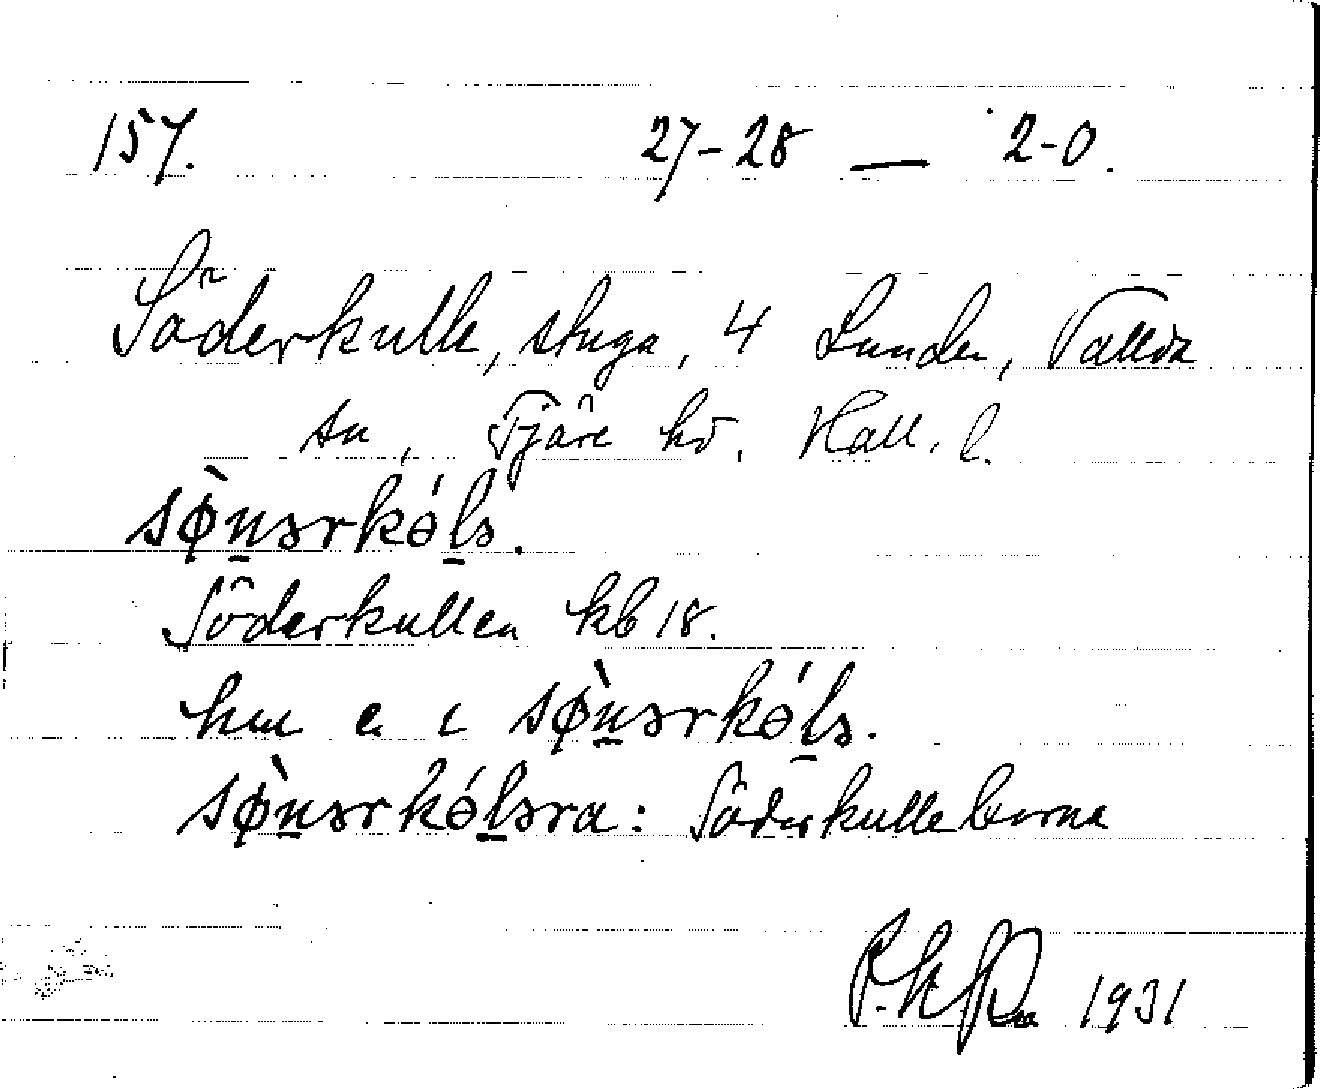 157. 27-28 — 2-0.
Söderkulle, stuga, 4 Lunden, Vallda
sn, Fjäre hd. Hall. l.
sø̀n̲ərkɵ́l̲ə.
Söderkullen kb 18.
hu e ɩ sø̀n̲ərkɵ́l̲ə.
sø̀n̲ərkɵ́l̲əra: Söderkulleborna
1931